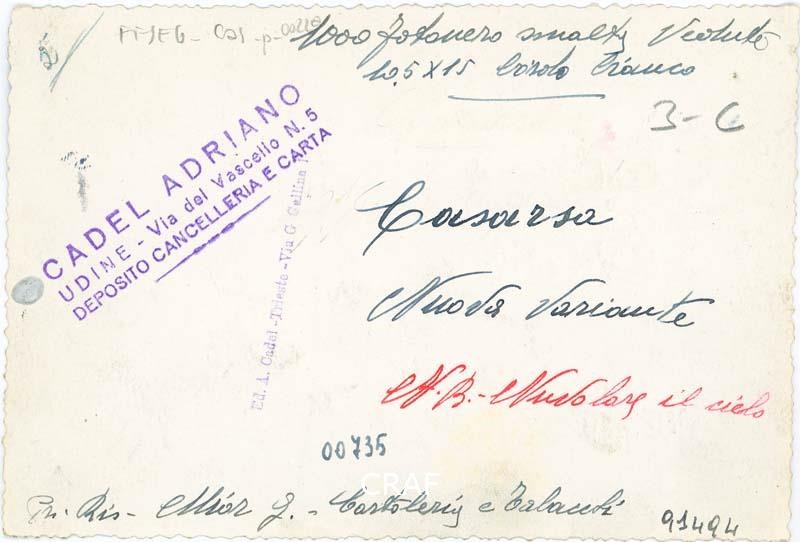 1000 fotonero smalti Vedute
10,5 X 15 Bordo Bianco
3-C
CADEL ADRIANO
UDINE - Via del Vascello N. 5
DEPOSITO CANCELLERIA E CARTA
Ed. A. Cadel - Trieste - Via G. Gallina 1
Casarsa
Nuova Variante
N.B.- Nuvolare il cielo
00735
CRAF
Pr. Ris- Miór G. - Cartoleria e Tabacchi
91494